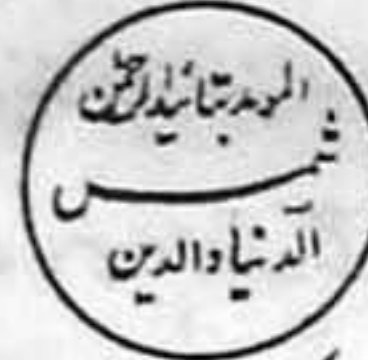 الموید بتائید الرحمن
شمس
الدنیا والدین